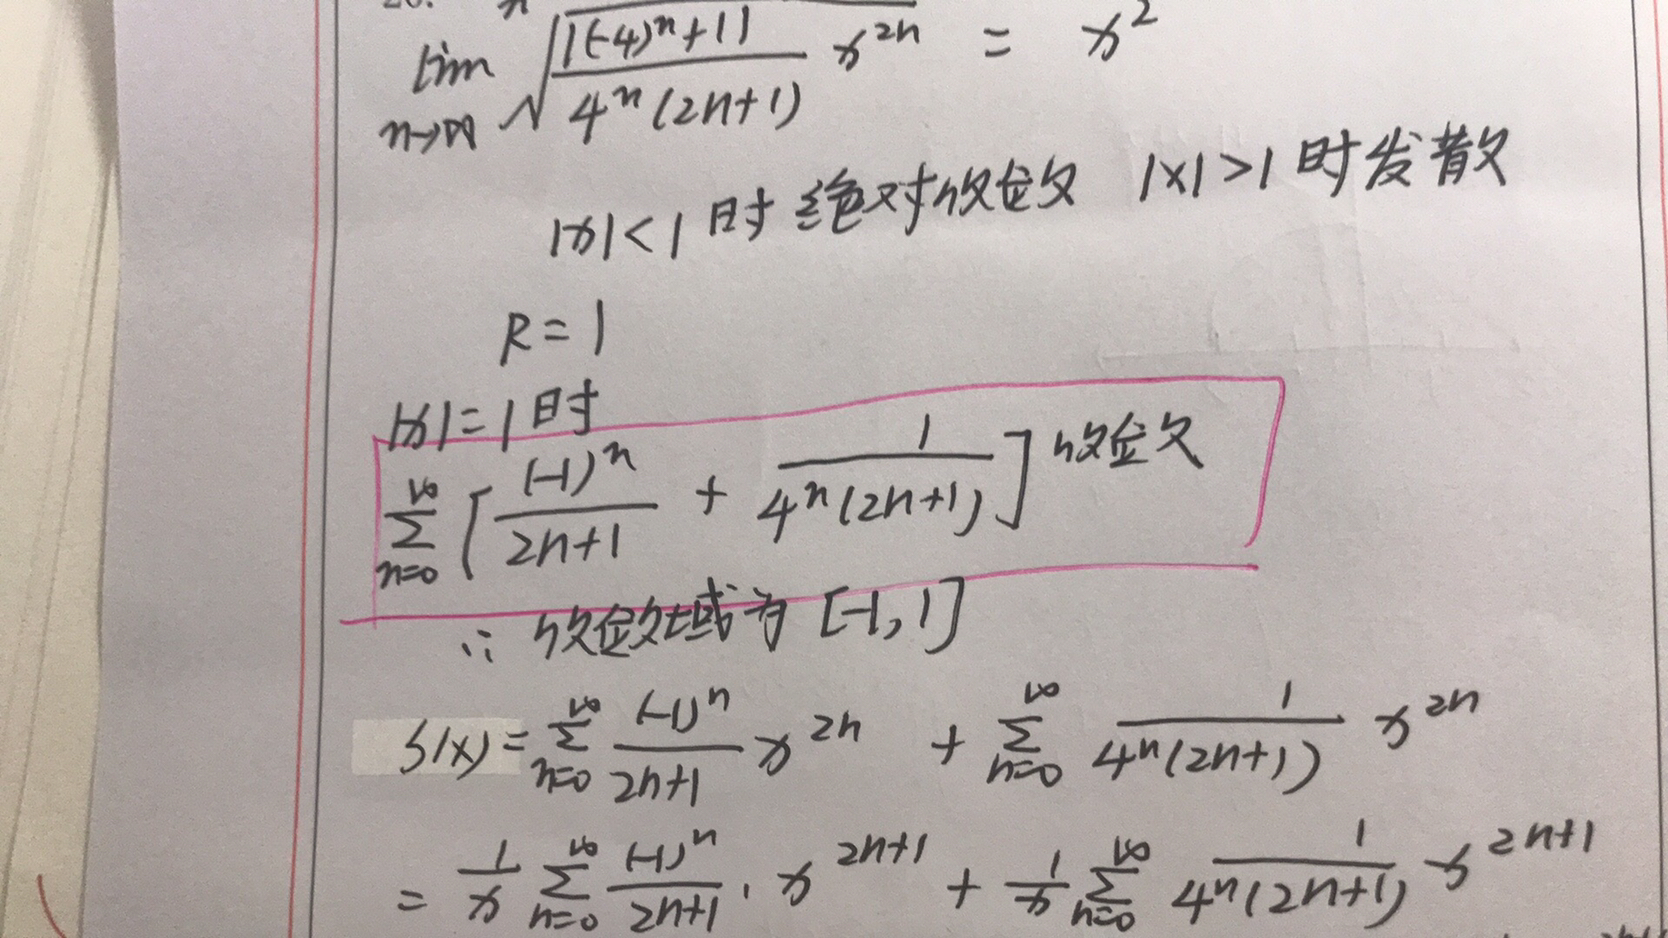 20.
lim n→∞ ⁿ√(|(-4)ⁿ+1| / 4ⁿ(2n+1) x²ⁿ) = x²
|x|<1 时绝对收敛 |x|>1 时发散
R=1
|x|=1时
∑_{n=0}^{∞} [(-1)ⁿ/(2n+1) + 1/(4ⁿ(2n+1))] 收敛
∴ 收敛域为 [-1,1]
S(x)=∑_{n=0}^{∞} (-1)ⁿ/(2n+1) x²ⁿ + ∑_{n=0}^{∞} 1/(4ⁿ(2n+1)) x²ⁿ
= 1/x ∑_{n=0}^{∞} (-1)ⁿ/(2n+1) · x²ⁿ⁺¹ + 1/x ∑_{n=0}^{∞} 1/(4ⁿ(2n+1)) x²ⁿ⁺¹